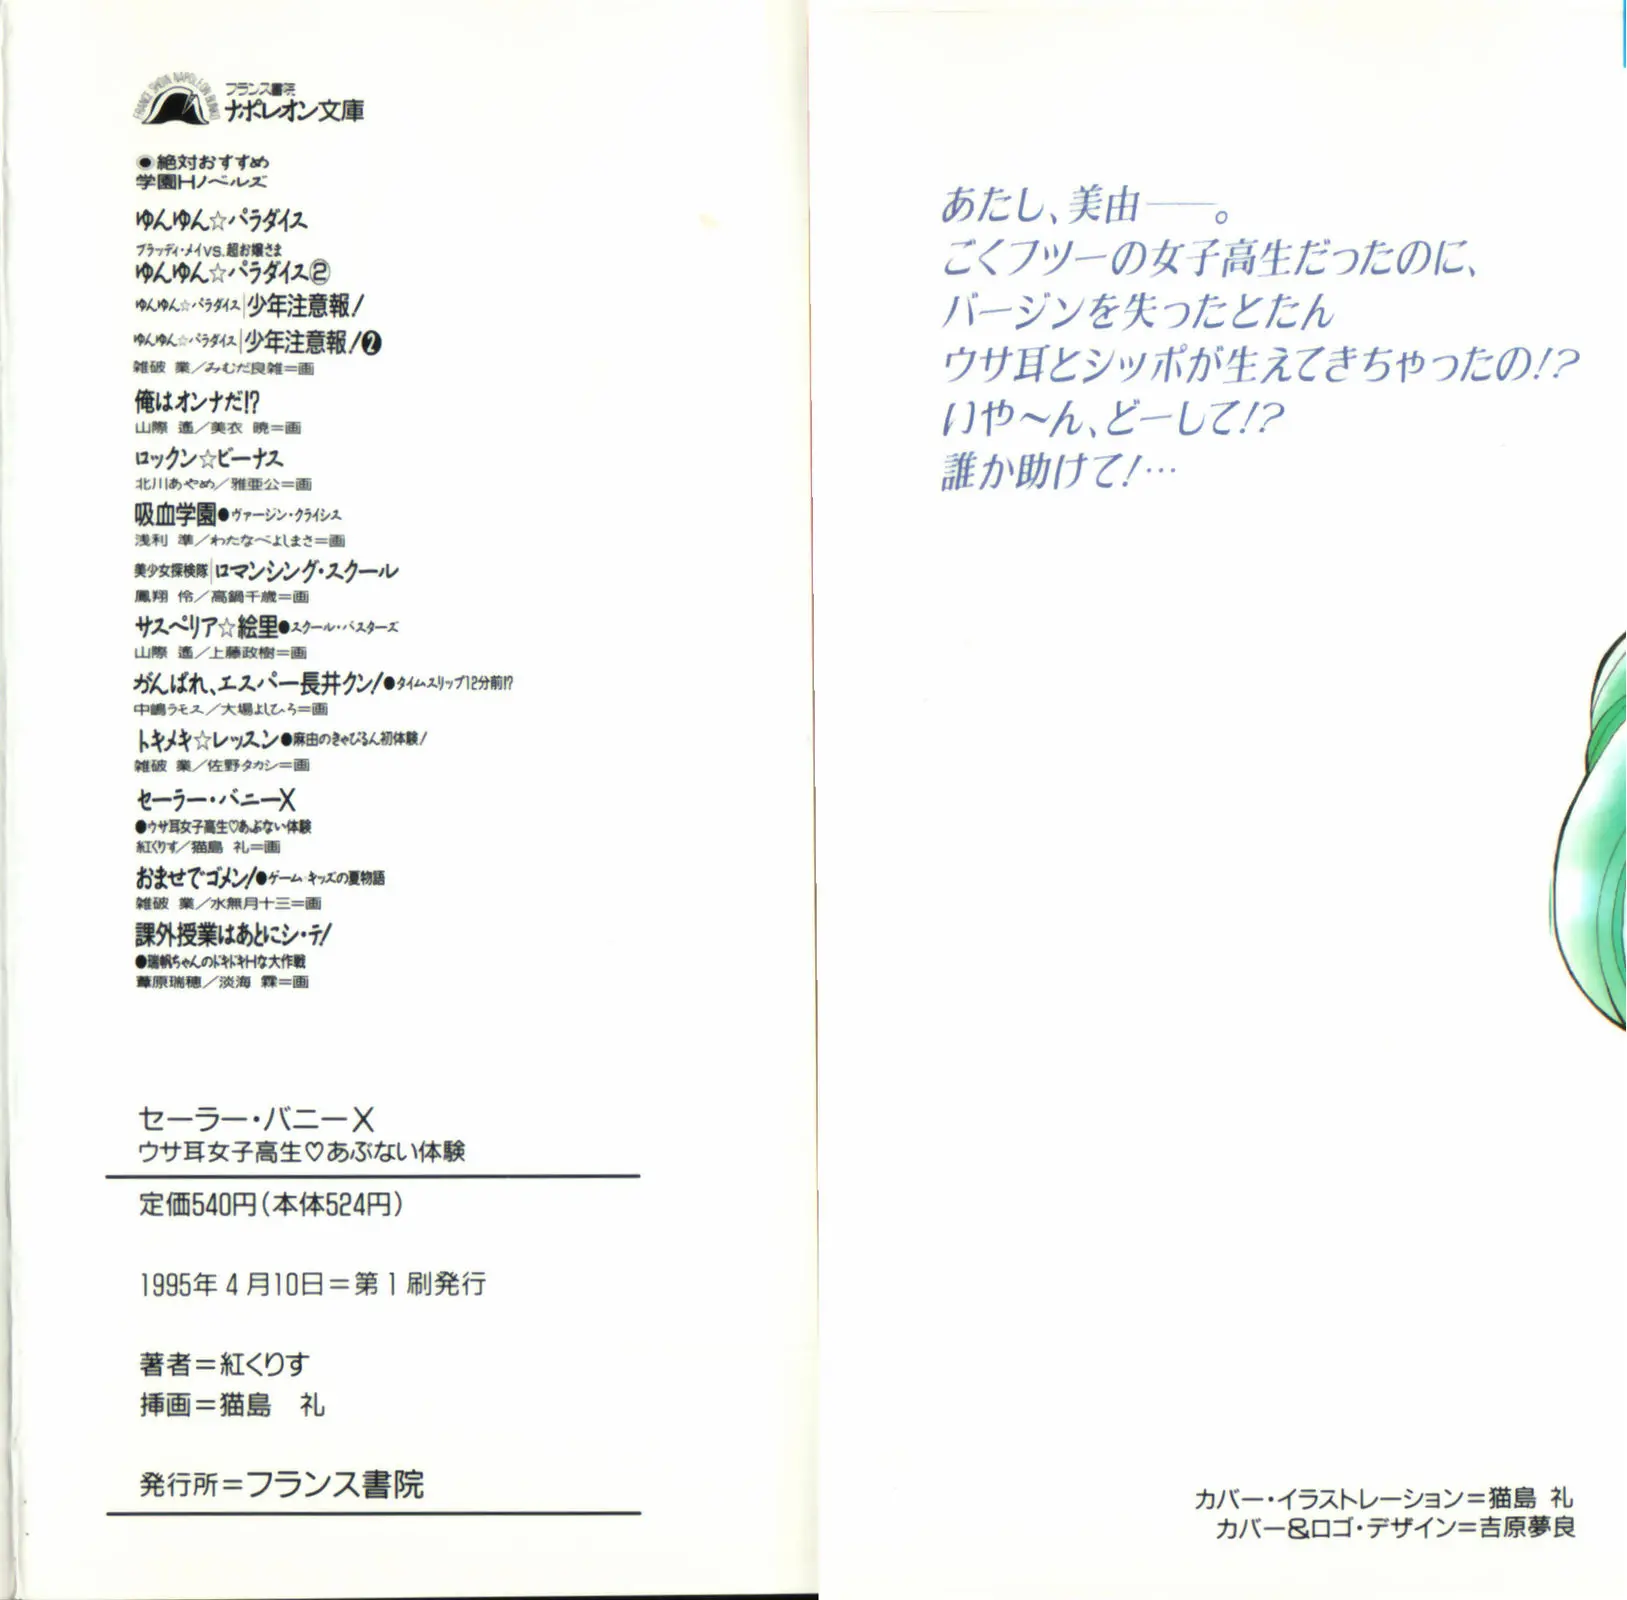 FRANCE SHOIN NAPOLEON BUNKO
フランス書院
ナポレオン文庫
●絶対おすすめ
学園Hノベルズ
ゆんゆん☆パラダイス
ブラッディ・メイVS.超お嬢さま
ゆんゆん☆パラダイス②
ゆんゆん☆パラダイス|少年注意報!
ゆんゆん☆パラダイス|少年注意報!❷
雑破 業/みむだ良雑=画
俺はオンナだ!?
山際 遙/美衣 暁=画
ロックン☆ビーナス
北川あやめ/雅亜公=画
吸血学園●ヴァージン・クライシス
浅利 準/わたなべよしまさ=画
美少女探検隊|ロマンシング・スクール
鳳翔 伶/高鍋千歳=画
サスペリア☆絵里●スクール・バスターズ
山際 遙/上藤政樹=画
がんばれ、エスパー長井クン!●タイムスリップ12分前!?
中嶋ラモス/大場よしひろ=画
トキメキ☆レッスン●麻由のきゃぴるん初体験!
雑破 業/佐野タカシ=画
セーラー・バニーX
●ウサ耳女子高生♡あぶない体験
紅くりす/猫島 礼=画
おませでゴメン!●ゲーム・キッズの夏物語
雑破 業/水無月十三=画
課外授業はあとにシ・テ!
●瑞帆ちゃんのドキドキHな大作戦
葦原瑞穂/淡海 霖=画
セーラー・バニーX
ウサ耳女子高生♡あぶない体験
定価540円(本体524円)
1995年4月10日=第1刷発行
著者=紅くりす
挿画=猫島 礼
発行所=フランス書院
あたし、美由――。
ごくフツーの女子高生だったのに、
バージンを失ったとたん
ウサ耳とシッポが生えてきちゃったの!?
いや〜ん、どーして!?
誰か助けて!…
カバー・イラストレーション=猫島 礼
カバー&ロゴ・デザイン=吉原夢良